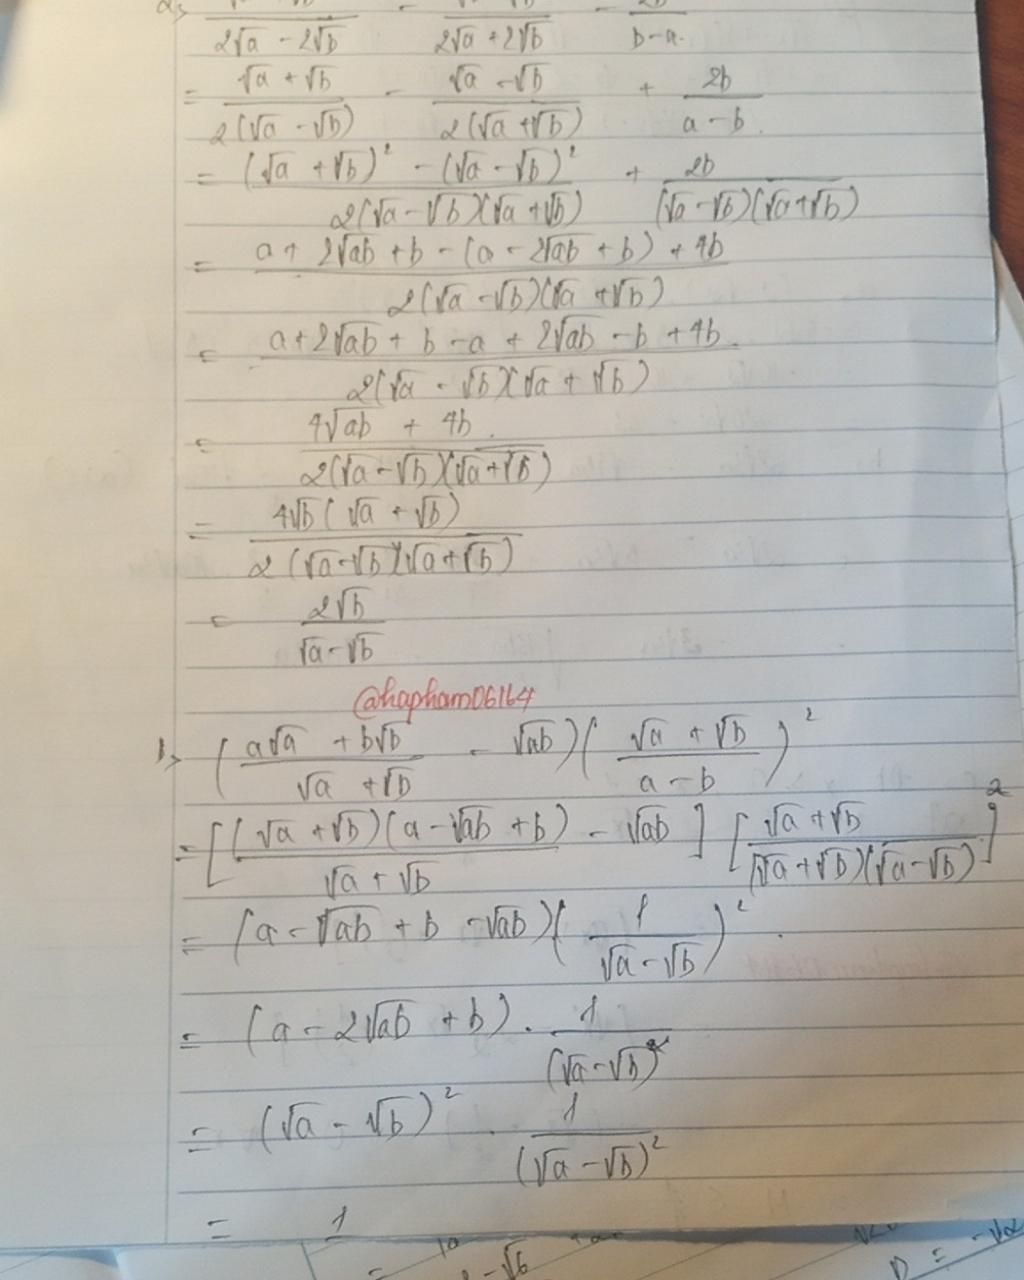 2√a - 2√b    2√a + 2√b    b - a.
= (√a + √b)/(2(√a - √b)) - (√a - √b)/(2(√a + √b)) + 2b/(a - b).
= ((√a + √b)² - (√a - √b)²)/(2(√a - √b)(√a + √b)) + 2b/((√a - √b)(√a + √b))
= (a + 2√ab + b - (a - 2√ab + b) + 4b)/(2(√a - √b)(√a + √b))
= (a + 2√ab + b - a + 2√ab - b + 4b.)/(2(√a - √b)(√a + √b))
= (4√ab + 4b.)/(2(√a - √b)(√a + √b))
= (4√b(√a + √b))/(2(√a - √b)(√a + √b))
= 2√b/(√a - √b)
@hapham06164
((a√a + b√b)/(√a + √b) - √ab)((√a + √b)/(a - b))²
= [((√a + √b)(a - √ab + b))/(√a + √b) - √ab] [(√a + √b)/((√a + √b)(√a - √b))]²
= (a - √ab + b - √ab)(1/(√a - √b))².
= (a - 2√ab + b) . 1/(√a - √b)²
= (√a - √b)² . 1/(√a - √b)²
= 1